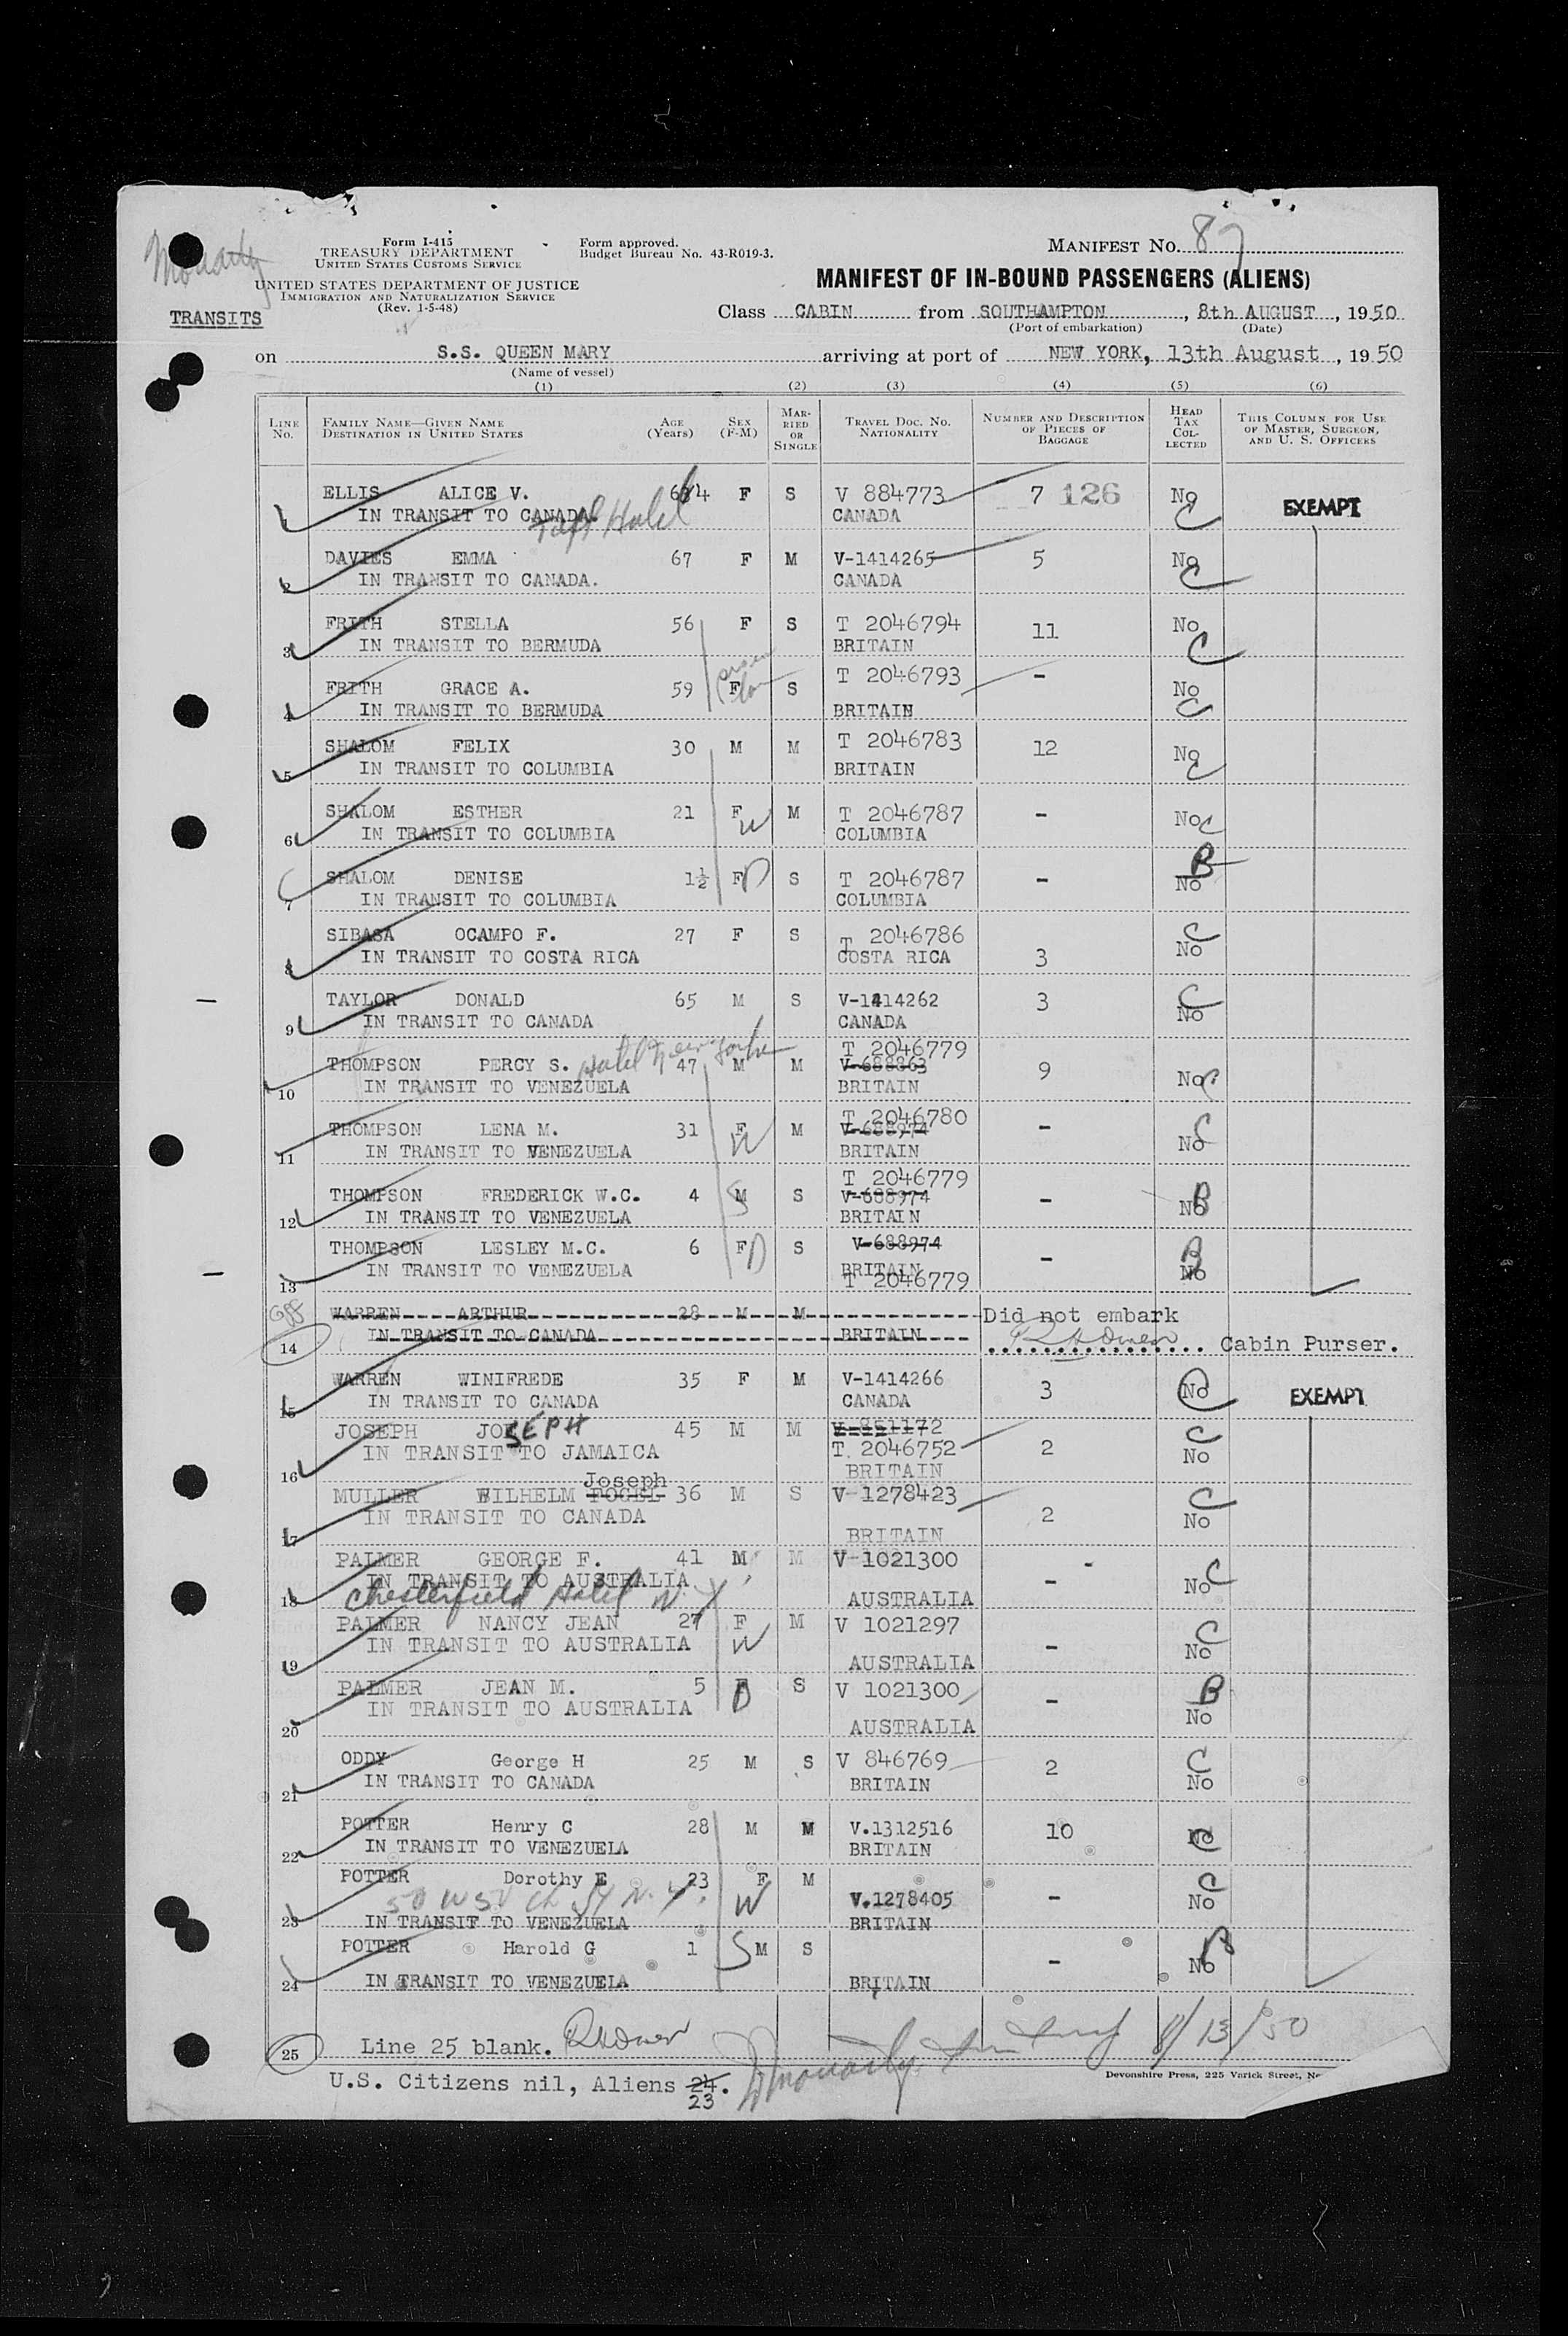 Form I-415
TREASURY DEPARTMENT
UNITED STATES CUSTOMS SERVICE
UNITED STATES DEPARTMENT OF JUSTICE
IMMIGRATION AND NATURALIZATION SERVICE
(Rev. 1-5-48)
TRANSITS
Form approved.
Budget Bureau No. 43-R019-3.
MANIFEST NO. 87
MANIFEST OF IN-BOUND PASSENGERS (ALIENS)
Class CABIN from SOUTHAMPTON, 8th AUGUST, 1950
(Port of embarkation) (Date)
on S.S. QUEEN MARY arriving at port of NEW YORK, 13th August, 1950
(Name of vessel)
(1) (2) (3) (4) (5) (6)
LINE No. FAMILY NAME—GIVEN NAME DESTINATION IN UNITED STATES AGE (Years) SEX (F-M) MARRIED OR SINGLE TRAVEL DOC. NO. NATIONALITY NUMBER AND DESCRIPTION OF PIECES OF BAGGAGE HEAD TAX COLLECTED THIS COLUMN FOR USE OF MASTER, SURGEON, AND U. S. OFFICERS
ELLIS ALICE V. 64 F S V 884773 7 126 No C EXEMPT
1 IN TRANSIT TO CANADA. CANADA
DAVIES EMMA 67 F M V-1414265 5 No C
2 IN TRANSIT TO CANADA. CANADA
FRITH STELLA 56 F S T 2046794 11 No C
3 IN TRANSIT TO BERMUDA BRITAIN
FRITH GRACE A. 59 F S T 2046793 - No C
4 IN TRANSIT TO BERMUDA BRITAIN
SHALOM FELIX 30 M M T 2046783 12 No C
5 IN TRANSIT TO COLUMBIA BRITAIN
SHALOM ESTHER 21 F W M T 2046787 - No C
6 IN TRANSIT TO COLUMBIA COLUMBIA
SHALOM DENISE 1½ F D S T 2046787 - No B
7 IN TRANSIT TO COLUMBIA COLUMBIA
SIBASA OCAMPO F. 27 F S T 2046786 3 No C
8 IN TRANSIT TO COSTA RICA COSTA RICA
TAYLOR DONALD 65 M S V-1414262 3 No C
9 IN TRANSIT TO CANADA CANADA
Hotel New Yorker
THOMPSON PERCY S. 47 M M T 2046779 V-688863 9 No C
10 IN TRANSIT TO VENEZUELA BRITAIN
THOMPSON LENA M. 31 F W M T 2046780 V-688974 - No C
11 IN TRANSIT TO VENEZUELA BRITAIN
THOMPSON FREDERICK W.C. 4 M S S T 2046779 V-688974 - No B
12 IN TRANSIT TO VENEZUELA BRITAIN
THOMPSON LESLEY M.C. 6 F D S V-688974 - No B
13 IN TRANSIT TO VENEZUELA BRITAIN T 2046779
WARREN ARTHUR 28 M M Did not embark
14 IN TRANSIT TO CANADA BRITAIN Cabin Purser.
WARREN WINIFREDE 35 F M V-1414266 3 No C EXEMPT
15 IN TRANSIT TO CANADA CANADA
JOSEPH JOSEPH 45 M M V-851172 T. 2046752 2 No C
16 IN TRANSIT TO JAMAICA BRITAIN
MULLER WILHELM FOGEL Joseph 36 M S V-1278423 2 No C
17 IN TRANSIT TO CANADA BRITAIN
PALMER GEORGE F. 41 M M V-1021300 - No C
18 IN TRANSIT TO AUSTRALIA AUSTRALIA
Chesterfield Hotel N Y
PALMER NANCY JEAN 27 F W M V 1021297 - No C
19 IN TRANSIT TO AUSTRALIA AUSTRALIA
PALMER JEAN M. 5 F D S V 1021300 - No B
20 IN TRANSIT TO AUSTRALIA AUSTRALIA
ODDY George H 25 M S V 846769 2 No C
21 IN TRANSIT TO CANADA BRITAIN
POTTER Henry C 28 M M V.1312516 10 No C
22 IN TRANSIT TO VENEZUELA BRITAIN
POTTER Dorothy E 23 F W M V.1278405 - No C
23 IN TRANSIT TO VENEZUELA BRITAIN
POTTER Harold G 1 S M S - No B
24 IN TRANSIT TO VENEZUELA BRITAIN
25 Line 25 blank. 8/13/50
U.S. Citizens nil, Aliens 24. 23
Devonshire Press, 225 Varick Street,